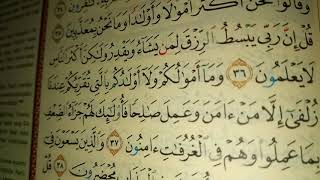 وَقَالُوا۟ نَحْنُ أَكْثَرُ أَمْوَٰلًا وَأَوْلَٰدًا وَمَا نَحْنُ بِمُعَذَّبِينَ ٣٥
قُلْ إِنَّ رَبِّى يَبْسُطُ ٱلرِّزْقَ لِمَن يَشَآءُ وَيَقْدِرُ وَلَٰكِنَّ أَكْثَرَ ٱلنَّاسِ
لَا يَعْلَمُونَ ٣٦ وَمَآ أَمْوَٰلُكُمْ وَلَآ أَوْلَٰدُكُم بِٱلَّتِى تُقَرِّبُكُمْ عِندَنَا
زُلْفَىٰٓ إِلَّا مَنْ ءَامَنَ وَعَمِلَ صَٰلِحًا فَأُو۟لَٰٓئِكَ لَهُمْ جَزَآءُ ٱلضِّعْفِ
بِمَا عَمِلُوا۟ وَهُمْ فِى ٱلْغُرُفَٰتِ ءَامِنُونَ ٣٧ وَٱلَّذِينَ يَسْعَوْنَ فِىٓ
مُحْضَرُونَ ٣٨